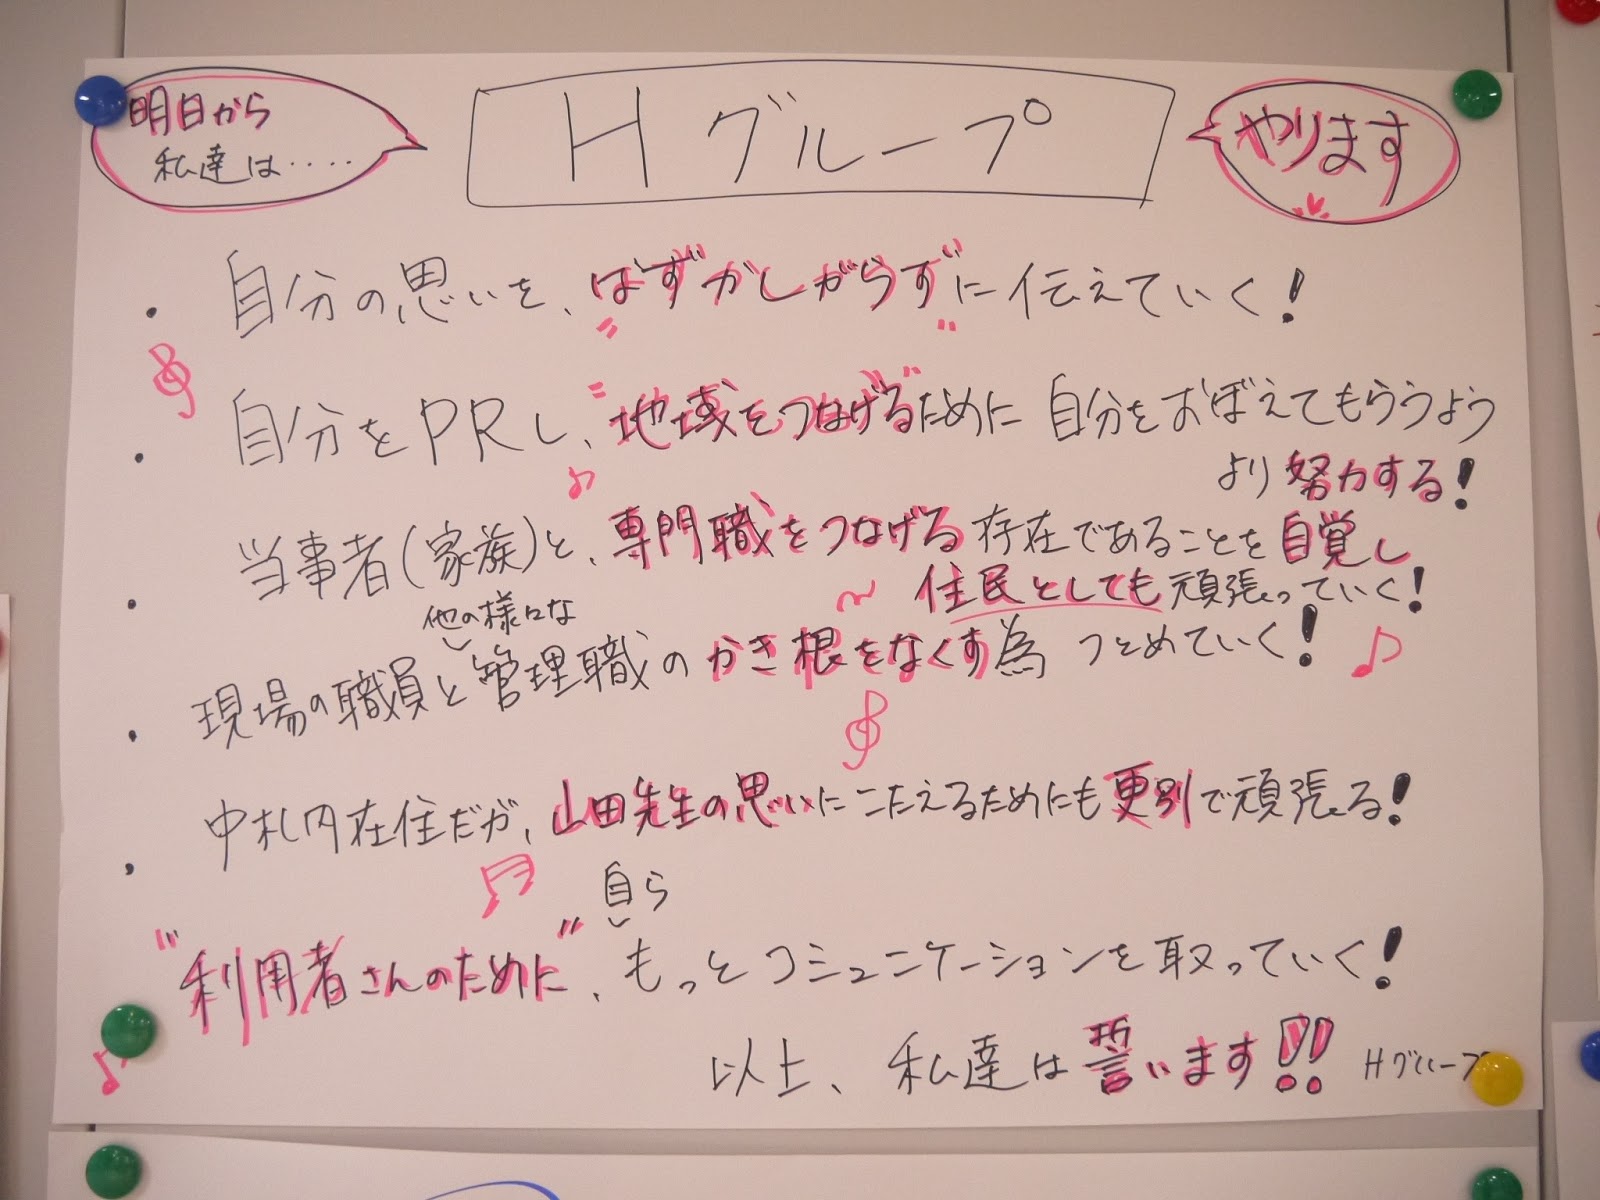 明日から
私達は‥‥
Hグループ
やります
・自分の思いを、はずかしがらずに伝えていく!
・自分をPRし、"地域をつなげる"ために自分をおぼえてもらうよう
より努力する!
・当事者(家族)と、専門職をつなげる存在であることを自覚し
〜住民としても頑張っていく!
他の様々な
・現場の職員と管理職のかき根をなくす為つとめていく!
・中札内在住だが、山田先生の思いにこたえるためにも更別で頑張る!
自ら
"利用者さんのために"、もっとコミュニケーションを取っていく!
以上、私達は誓います!! Hグループ